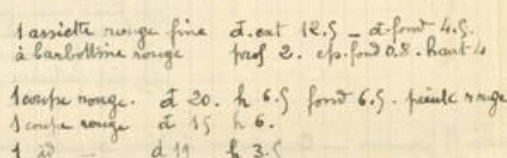 1 assiette rouge fine d. ext 12.5 _ d. fond 4.5.
à barbottine rouge prof 2. ep. fond 0.8. haut 4
1 coupe rouge. d 20. h 6.5 fond 6.5. peinte rouge
1 coupe rouge d 15 h 6.
1 id — d 19 h 3.5